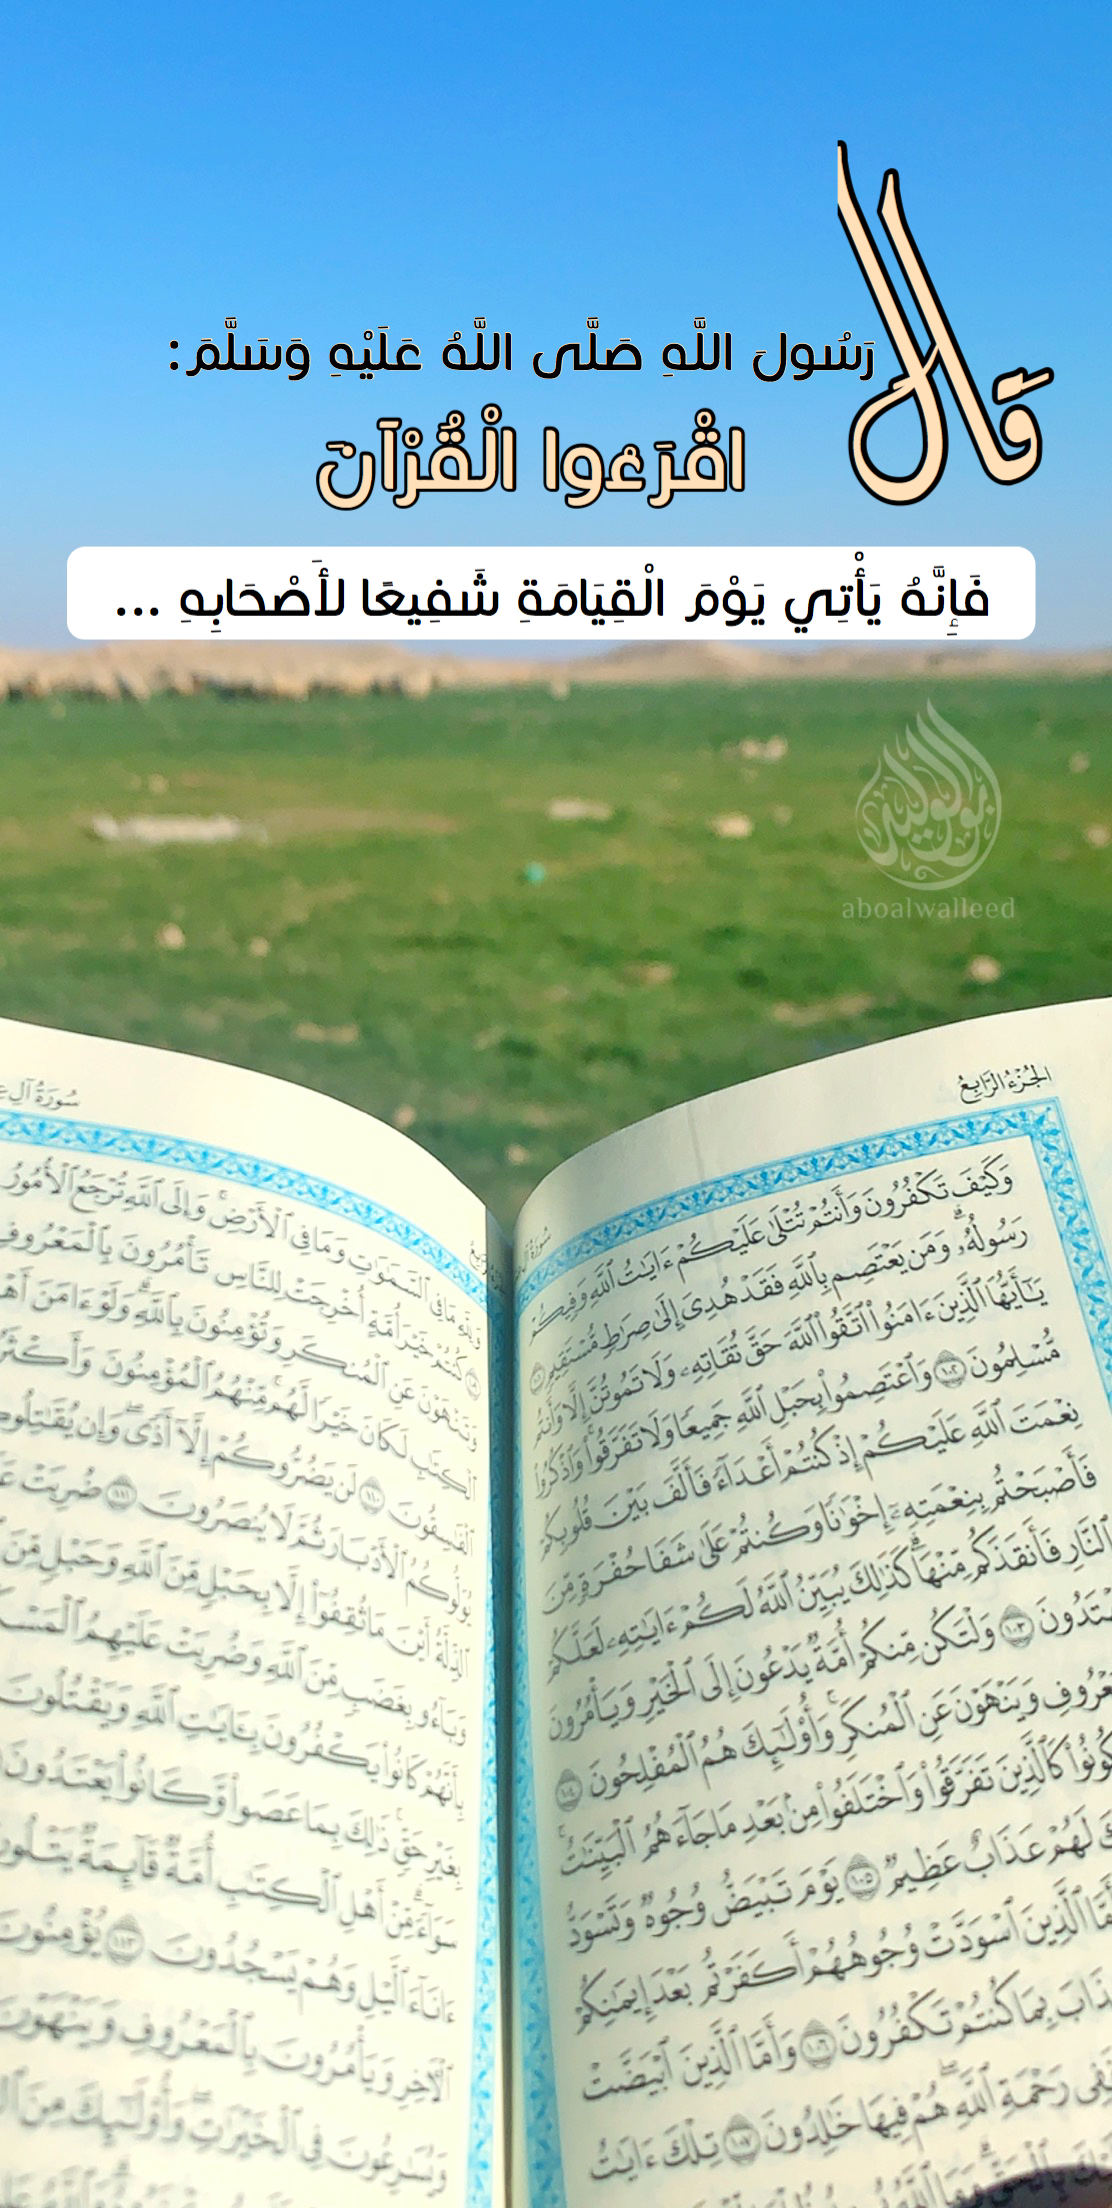 قَالَ
رَسُولَ اللَّهِ صَلَّى اللَّهُ عَلَيْهِ وَسَلَّمَ:
اقْرَءُوا الْقُرْآنَ
فَإِنَّهُ يَأْتِي يَوْمَ الْقِيَامَةِ شَفِيعًا لأَصْحَابِهِ ...
أبو الوليد
aboalwalleed
الجُزْءُ الرَّابِعُ
وَكَيْفَ تَكْفُرُونَ وَأَنتُمْ تُتْلَىٰ عَلَيْكُمْ ءَايَٰتُ ٱللَّهِ وَفِيكُمْ
رَسُولُهُۥ وَمَن يَعْتَصِم بِٱللَّهِ فَقَدْ هُدِىَ إِلَىٰ صِرَٰطٍ مُّسْتَقِيمٍ
يَٰٓأَيُّهَا ٱلَّذِينَ ءَامَنُوا۟ ٱتَّقُوا۟ ٱللَّهَ حَقَّ تُقَاتِهِۦ وَلَا تَمُوتُنَّ إِلَّا وَأَنتُم
مُّسْلِمُونَ ١٠٢ وَٱعْتَصِمُوا۟ بِحَبْلِ ٱللَّهِ جَمِيعًا وَلَا تَفَرَّقُوا۟ وَٱذْكُرُوا۟
نِعْمَتَ ٱللَّهِ عَلَيْكُمْ إِذْ كُنتُمْ أَعْدَآءً فَأَلَّفَ بَيْنَ قُلُوبِكُمْ
فَأَصْبَحْتُم بِنِعْمَتِهِۦٓ إِخْوَٰنًا وَكُنتُمْ عَلَىٰ شَفَا حُفْرَةٍ مِّنَ
ٱلنَّارِ فَأَنقَذَكُم مِّنْهَا كَذَٰلِكَ يُبَيِّنُ ٱللَّهُ لَكُمْ ءَايَٰتِهِۦ لَعَلَّكُمْ
تَدُونَ ١٠٣ وَلْتَكُن مِّنكُمْ أُمَّةٌ يَدْعُونَ إِلَى ٱلْخَيْرِ وَيَأْمُرُونَ
عْرُوفِ وَيَنْهَوْنَ عَنِ ٱلْمُنكَرِ وَأُو۟لَٰٓئِكَ هُمُ ٱلْمُفْلِحُونَ ١٠٤
كُونُوا۟ كَٱلَّذِينَ تَفَرَّقُوا۟ وَٱخْتَلَفُوا۟ مِنۢ بَعْدِ مَا جَآءَهُمُ ٱلْبَيِّنَٰتُ
كَ لَهُمْ عَذَابٌ عَظِيمٌ ١٠٥ يَوْمَ تَبْيَضُّ وُجُوهٌ وَتَسْوَدُّ
أَمَّا ٱلَّذِينَ ٱسْوَدَّتْ وُجُوهُهُمْ أَكَفَرْتُم بَعْدَ إِيمَٰنِكُمْ
ذَابَ بِمَا كُنتُمْ تَكْفُرُونَ ١٠٦ وَأَمَّا ٱلَّذِينَ ٱبْيَضَّتْ
فَفِى رَحْمَةِ ٱللَّهِ هُمْ فِيهَا خَٰلِدُونَ ١٠٧ تِلْكَ ءَايَٰتُ
سُورَةُ آلِ
وَلِلَّهِ مَا فِى ٱلسَّمَٰوَٰتِ وَمَا فِى ٱلْأَرْضِ وَإِلَى ٱللَّهِ تُرْجَعُ ٱلْأُمُورُ
كُنتُمْ خَيْرَ أُمَّةٍ أُخْرِجَتْ لِلنَّاسِ تَأْمُرُونَ بِٱلْمَعْرُوفِ
وَتَنْهَوْنَ عَنِ ٱلْمُنكَرِ وَتُؤْمِنُونَ بِٱللَّهِ وَلَوْ ءَامَنَ أَهْ
ٱلْكِتَٰبِ لَكَانَ خَيْرًا لَّهُم مِّنْهُمُ ٱلْمُؤْمِنُونَ وَأَكْثَرُ
ٱلْفَٰسِقُونَ ١١٠ لَن يَضُرُّوكُمْ إِلَّآ أَذًى وَإِن يُقَٰتِلُوكُ
يُوَلُّوكُمُ ٱلْأَدْبَارَ ثُمَّ لَا يُنصَرُونَ ١١١ ضُرِبَتْ عَ
ٱلذِّلَّةُ أَيْنَ مَا ثُقِفُوٓا۟ إِلَّا بِحَبْلٍ مِّنَ ٱللَّهِ وَحَبْلٍ مِّنَ
وَبَآءُو بِغَضَبٍ مِّنَ ٱللَّهِ وَضُرِبَتْ عَلَيْهِمُ ٱلْمَسْكَ
بِأَنَّهُمْ كَانُوا۟ يَكْفُرُونَ بِـَٔايَٰتِ ٱللَّهِ وَيَقْتُلُونَ
بِغَيْرِ حَقٍّ ذَٰلِكَ بِمَا عَصَوا۟ وَّكَانُوا۟ يَعْتَدُونَ
سَوَآءً مِّنْ أَهْلِ ٱلْكِتَٰبِ أُمَّةٌ قَآئِمَةٌ يَتْلُونَ
ءَانَآءَ ٱلَّيْلِ وَهُمْ يَسْجُدُونَ ١١٣ يُؤْمِنُونَ
ٱلْـَٔاخِرِ وَيَأْمُرُونَ بِٱلْمَعْرُوفِ وَيَنْهَوْنَ
وَيُسَٰرِعُونَ فِى ٱلْخَيْرَٰتِ وَأُو۟لَٰٓئِكَ مِنَ